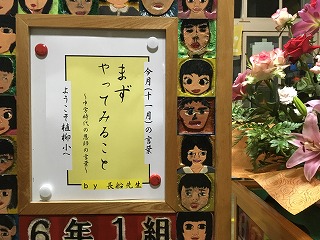 今月(十一月)の言葉
まず
やってみること
~中学時代の恩師の言葉~
ようこそ植柳小へ
by 長船先生
6年1組